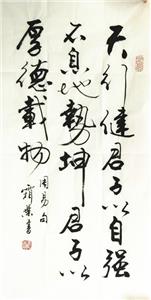 天行健君子以自强
不息地勢坤君子以
厚德載物
周易句
書